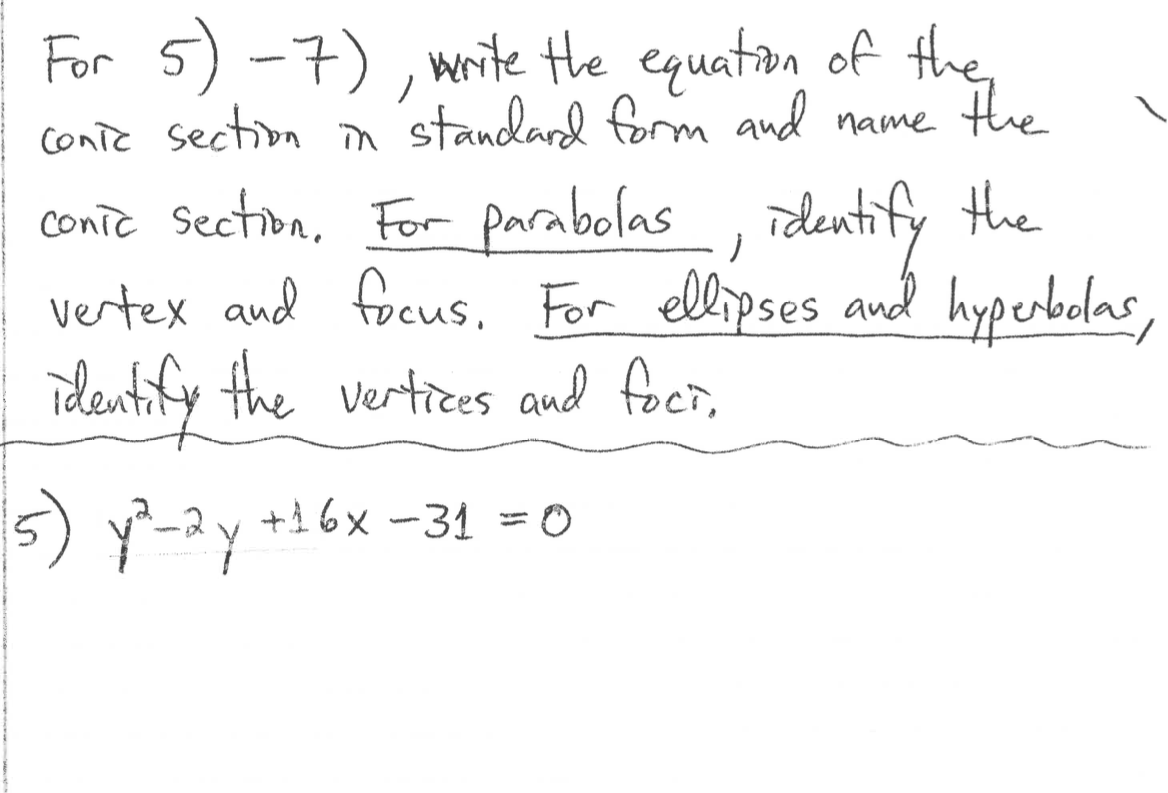 For 5) - 7), write the equation of the
conic section in standard form and name the
conic section. For parabolas, identify the
vertex and focus. For ellipses and hyperbolas,
identify the vertices and foci.
5) y²-2y +16x -31 = 0